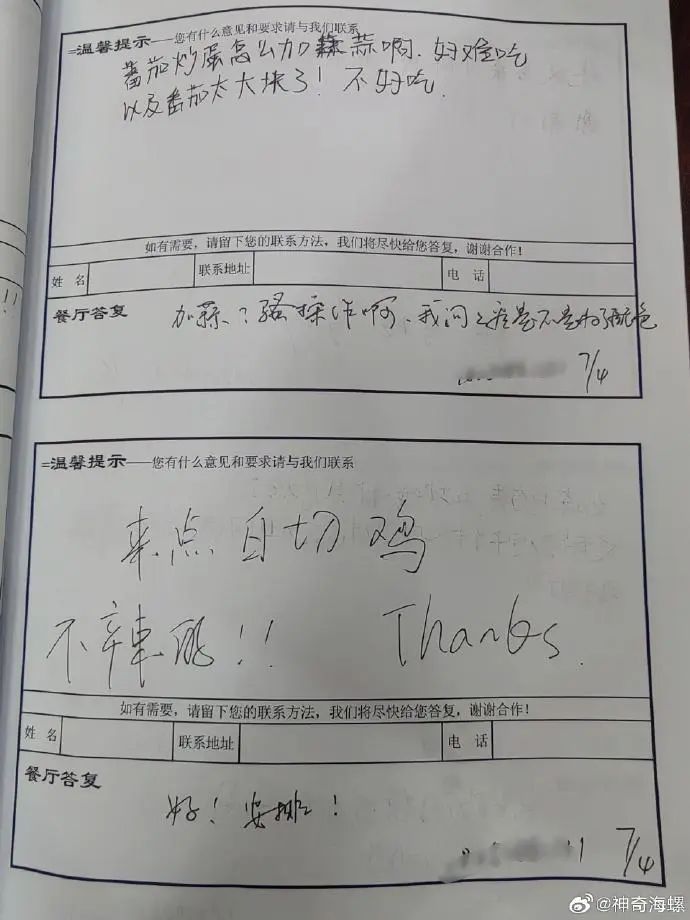 =温馨提示——您有什么意见和要求请与我们联系
蕃茄炒蛋怎么加蒜啊.好难吃
以及番茄太大块了！不好吃.
如有需要，请留下您的联系方法，我们将尽快给您答复，谢谢合作！
姓 名 联系地址 电 话
餐厅答复 加蒜？骚操作啊、我问之后是不是为了配色
7/4
=温馨提示——您有什么意见和要求请与我们联系
来点白切鸡
不辣 !! Thanks.
如有需要，请留下您的联系方法，我们将尽快给您答复，谢谢合作！
姓 名 联系地址 电 话
餐厅答复
好！安排！
7/4
@神奇海螺